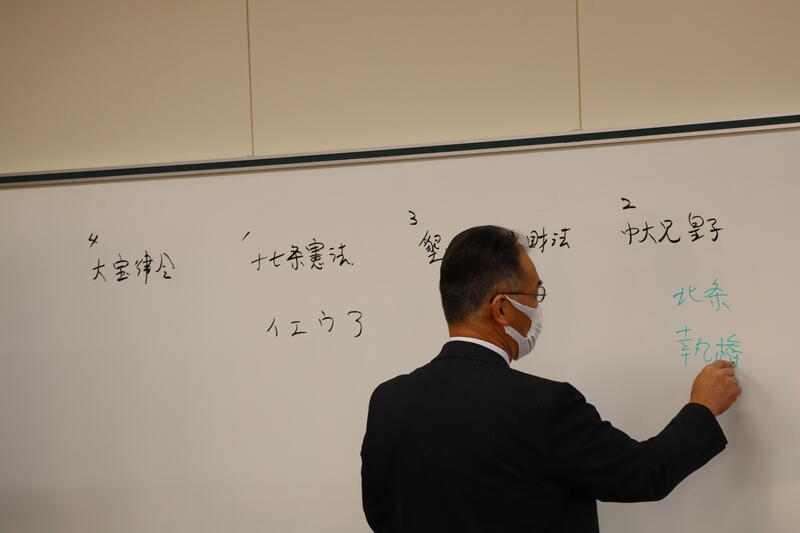 4 大宝律令
1 十七条憲法
3 墾 財法
2 中大兄皇子
イエウア
北条
執権